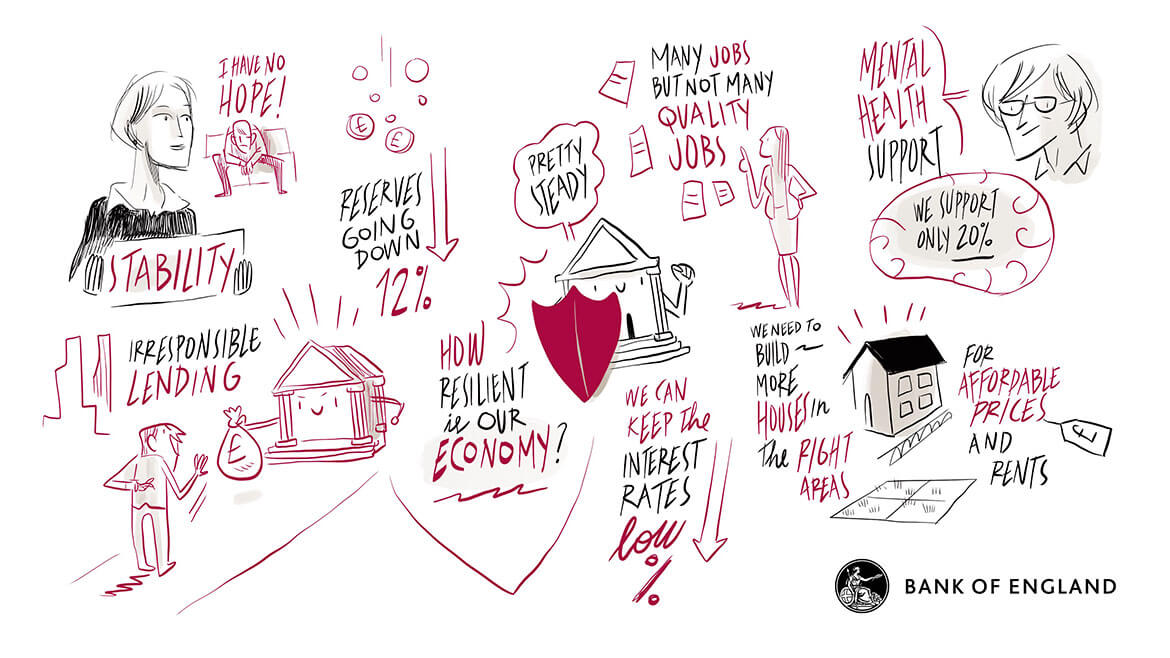 I HAVE NO
HOPE!
STABILITY
£
£
RESERVES
GOING
DOWN
12%
PRETTY
STEADY
MANY JOBS
BUT NOT MANY
QUALITY
JOBS
MENTAL
HEALTH
SUPPORT
WE SUPPORT
ONLY 20%
IRRESPONSIBLE
LENDING
£
HOW
RESILIENT
is OUR
ECONOMY?
WE CAN
KEEP the
INTEREST
RATES
low
%
WE NEED TO
BUILD
MORE
HOUSES in
the RIGHT
AREAS
FOR
AFFORDABLE
PRICES
AND
RENTS
£
BANK OF ENGLAND